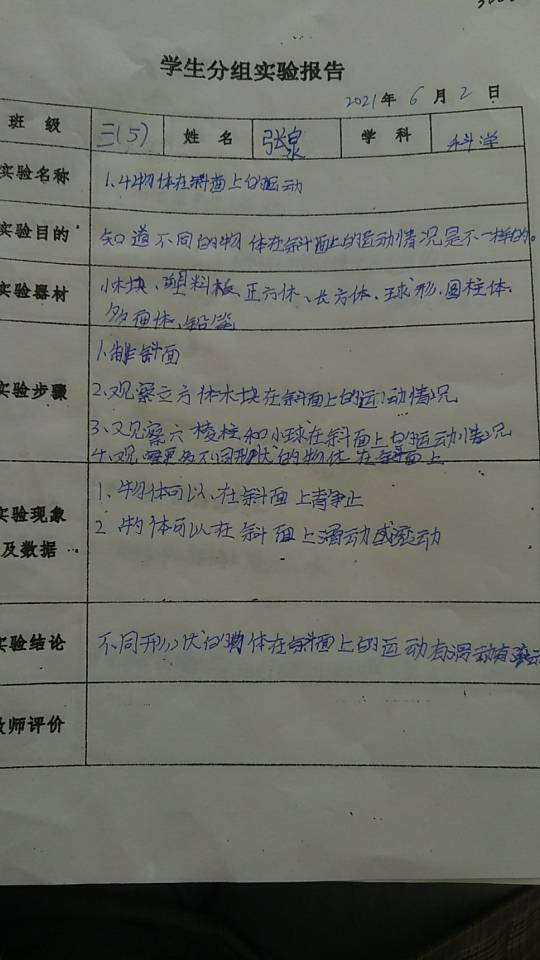 学生分组实验报告
2021年 6 月 2 日
班 级 三(5) 姓 名 张泉 学 科 科学
实验名称 1.4物体在斜面上的运动
实验目的 知道不同的物体在斜面上的运动情况是不一样的。
实验器材 小木块、塑料板、正方体、长方体、球形、圆柱体、
多面体、铅笔
1.制作斜面
实验步骤 2.观察立方体木块在斜面上的运动情况
3.观察六棱柱和小球在斜面上的运动情况
4.观察更多不同形状的物体在斜面上
1、物体可以在斜面上静止
实验现象及数据 2 物体可以在斜面上滑动或滚动
实验结论 不同形状的物体在斜面上的运动有滑动有滚动
教师评价